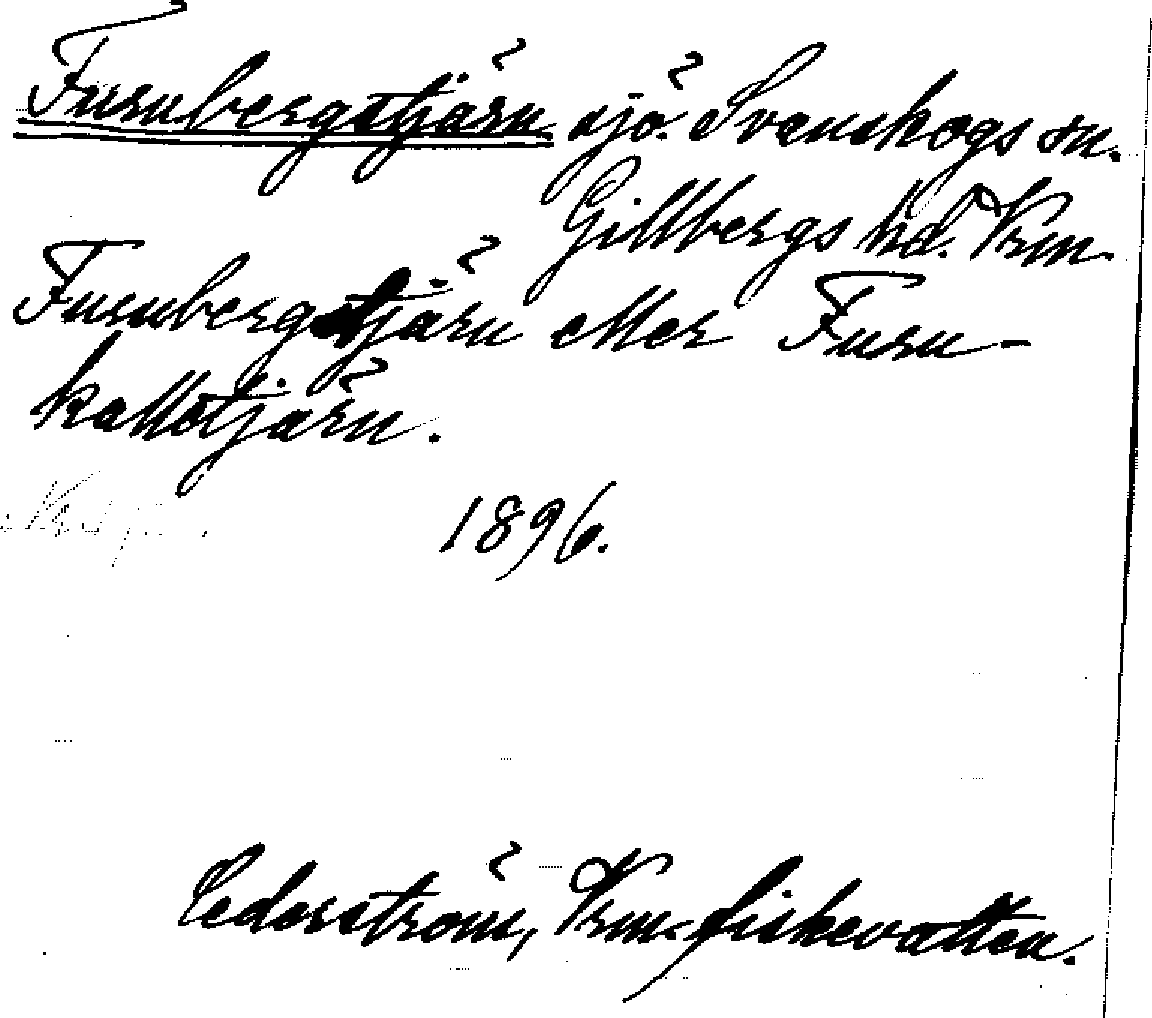 Furubergstjärn sjö. Svanskogs sn.
Gillbergs hd. Vrm.
Furubergstjärn eller Furu-
kallstjärn.
1896.
Cederström, Vrm. fiskevatten.